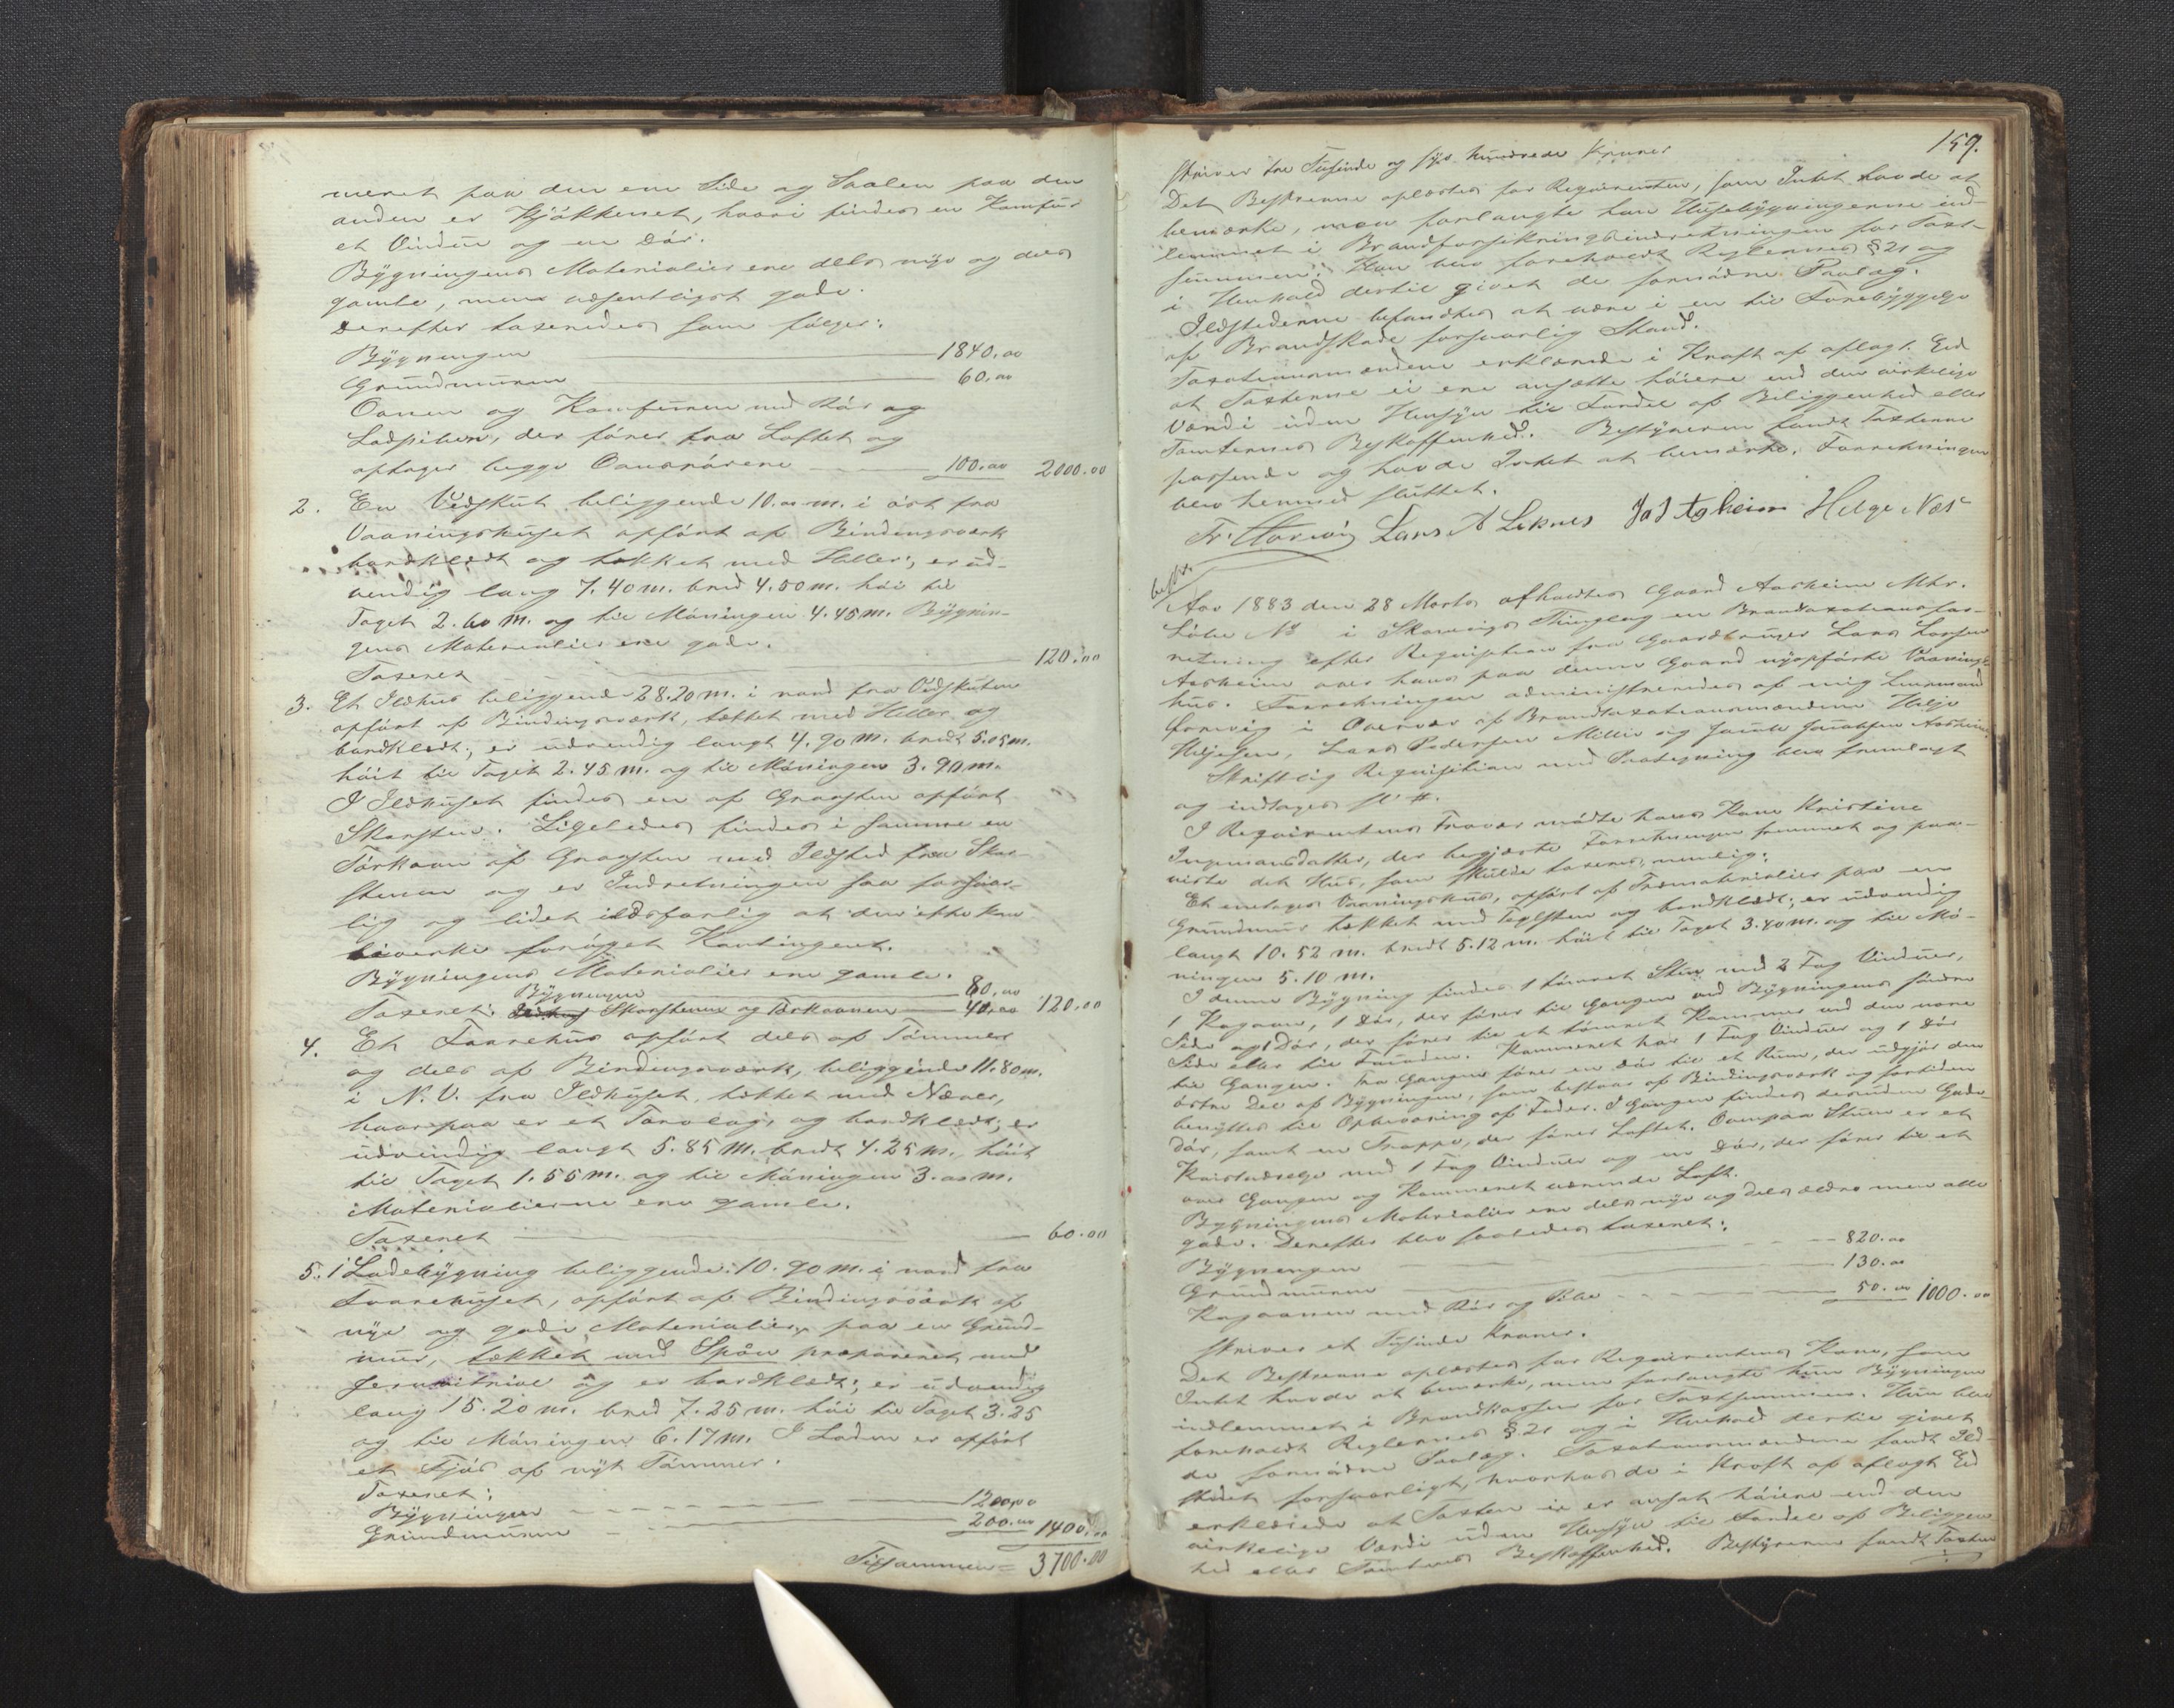 meret paa den ene Side og Saalen paa den
anden er Kjøkkenet, hvori findes en Komfur
et Vindue og en Dør.
Bygningens Materialier ere dels nye og dels
gamle, men væsentligst gode.
Derefter taxeredes som følger:
Bygningen 1840.00
Grundmuren 60.00
Ovnen og Komfuren med Rør og
Ladpiben, der fører fra Loftet og
optager begge Ovnsrørene 100.00 2000.00
2. En Vedskut beliggende 10.00 m. i øst fra
Vaaningshuset opført af Bindingsværk
bordklædt og tækket med Heller, er ud-
vendig lang 7.40 m. bred 4.50 m. høi til
Taget 2.60 m. og til Møningen 4.45 m. Bygnin-
gens Materialier ere gode.
Taxeret 120.00
3. Et Ildhus beliggende 28.20 m. i nord fra Vedskuten
opført af Bindingsværk, tækket med Heller og
bordklædt; er udvendig langt 4.90 m. bredt 5.05 m.
høit til Taget 2.45 m. og til Møningen 3.90 m.
I Ildhuset findes en af Graasten opført
Skorsten. Ligeledes findes i samme en
Tørkovn af Graasten med Ildsted fra Skor-
stenen og er Indretningen saa forsvar-
lig og lidet ildsfarlig at den ikke kan
bevirke forøget Kontingent.
Bygningens Materialier ere gamle.
Taxeret: Bygningen 80.00
Skorstenen og Tørkovnen 40.00 120.00
4. Et Torvehus opført dels af Tømmer
og dels af Bindingsværk, beliggende 11.80 m.
i N.V. fra Ildhuset, tækket med Næver,
hvorpaa er et Torvlag, og bordklædt; er
udvendig langt 5.85 m. bredt 4.25 m. høit
til Taget 1.55 m. og til Møningen 3.00 m.
Materialierne ere gamle.
Taxeret 60.00
5. 1 Ladebygning beliggende 10.90 m. i nord fra
Torvehuset, opført af Bindingsværk af
nye og gode Materialier, paa en Grund-
mur, tækket med Spaan præpareret med
Jernvitriol og er bordklædt; er udvendig
lang 15.20 m. bred 7.25 m. høi til Taget 3.25
og til Møningen 6.17 m. I Laden er opført
et Fjøs af nyt Tømmer.
Taxeret:
Bygningen 1200.00
Grundmuren 200.00 1400.00
Tilsammen = 3700.00
159.
skriver tre Tusinde og syv hundrede Kroner
Det Beskrevne oplæstes for Rekvirenten, som Intet havde at
bemærke, men forlangte han Husebygningerne ind-
lemmet i Brandforsikringsindretningen for Taxt-
summen. Han blev foreholdt Reglernes § 21 og
i Henhold dertil givet de fornødne Paalæg.
Ildstederne befandtes at være i en til Forebyggelse
af Brandskade forsvarlig Stand.
Taxationsmændene erklærede i Kraft af aflagt Ed
at Taxterne ei ere ansatte høiere end den virkelige
Værdi uden Hensyn til Fordel af Beliggenhed eller
Tomternes Beskaffenhed. Bestyreren fandt Taxterne
passende og havde Intet at bemærke. Forretningen
blev hermed sluttet.
Lars A Leknes J J Agheim Helge Næs
Aar 1883 den 28 Marts afholdtes Gaard Aarheim Mtr.
Løbe № i Thinglag en Brandtaxationsfor-
retning efter Requisition fra Gaardbruger Lars Larsen
Aarheim over hans paa denne Gaard nyopførte Vaanings-
hus. Forretningen administreredes af mig Lensmand
i Overvær af Brandtaxationsmændene Helje
Heljesen, Lars Pedersen og
Skriftlig Requisition med Paategning blev fremlagt
og indtages sl. #.
I Requirentens Fravær mødte hans Kone Kristine
Ingemansdatter, der begjærte Forretningen fremmet og paa-
viste det Hus, som skulde taxeres, nemlig:
Et enetages Vaaningshus, opført af Træmaterialier paa en
Grundmur tækket med Teglsten og bordklædt; er udvendig
langt 10.52 m. bredt 5.12 m. høit til Taget 3.40 m. og til Mø-
ningen 5.10 m.
I denne Bygning findes 1 tømret Stue med 2 Fag Vinduer,
1 Kogovn, 1 Dør, der fører til Gangen ved Bygningens søndre
Side og 1 Dør, der fører til et tømret Kammer ved den nore
Side eller til Frunden. Kammeret har 1 Fag Vinduer og 1 Dør
til Gangen. Fra Gangen fører en Dør til et Rum, der udgjør den
østre Del af Bygningen, som bestaar af Bindingsværk og fortiden
benyttes til Opbevaring af Foder. I Gangen findes desuden Gade-
dør, samt en Trappe, der fører Loftet. Ovenpaa Stuen er et
Kvistværelse med 1 Fag Vinduer og en Dør, der fører til et
over Gangen og Kammeret værende Loft.
Bygningens Materialier ere dels nye og dels ældre men alle
gode. Derefter blev saaledes taxeret:
Bygningen 820.00
Grundmuren 130.00
Kogovnen med Rør og Pibe 50.00 1000.00
skriver et Tusinde Kroner.
Det Beskrevne oplæstes for Requirentens Kone, som
Intet havde at bemærke, men forlangte hun Bygningen
indlemmet i Brandkassen for Taxtsummen. Hun blev
foreholdt Reglernes § 21 og i Henhold dertil givet
de fornødne Paalæg. Taxationsmændene fandt Ild-
stedet forsvarligt, hvorhos de i Kraft af aflagt Ed
erklærede at Taxten ei er ansat høiere end den
virkelige Værdi uden Hensyn til Fordel af Beliggen-
hed eller Tomtens Beskaffenhed. Bestyreren fandt Taxten